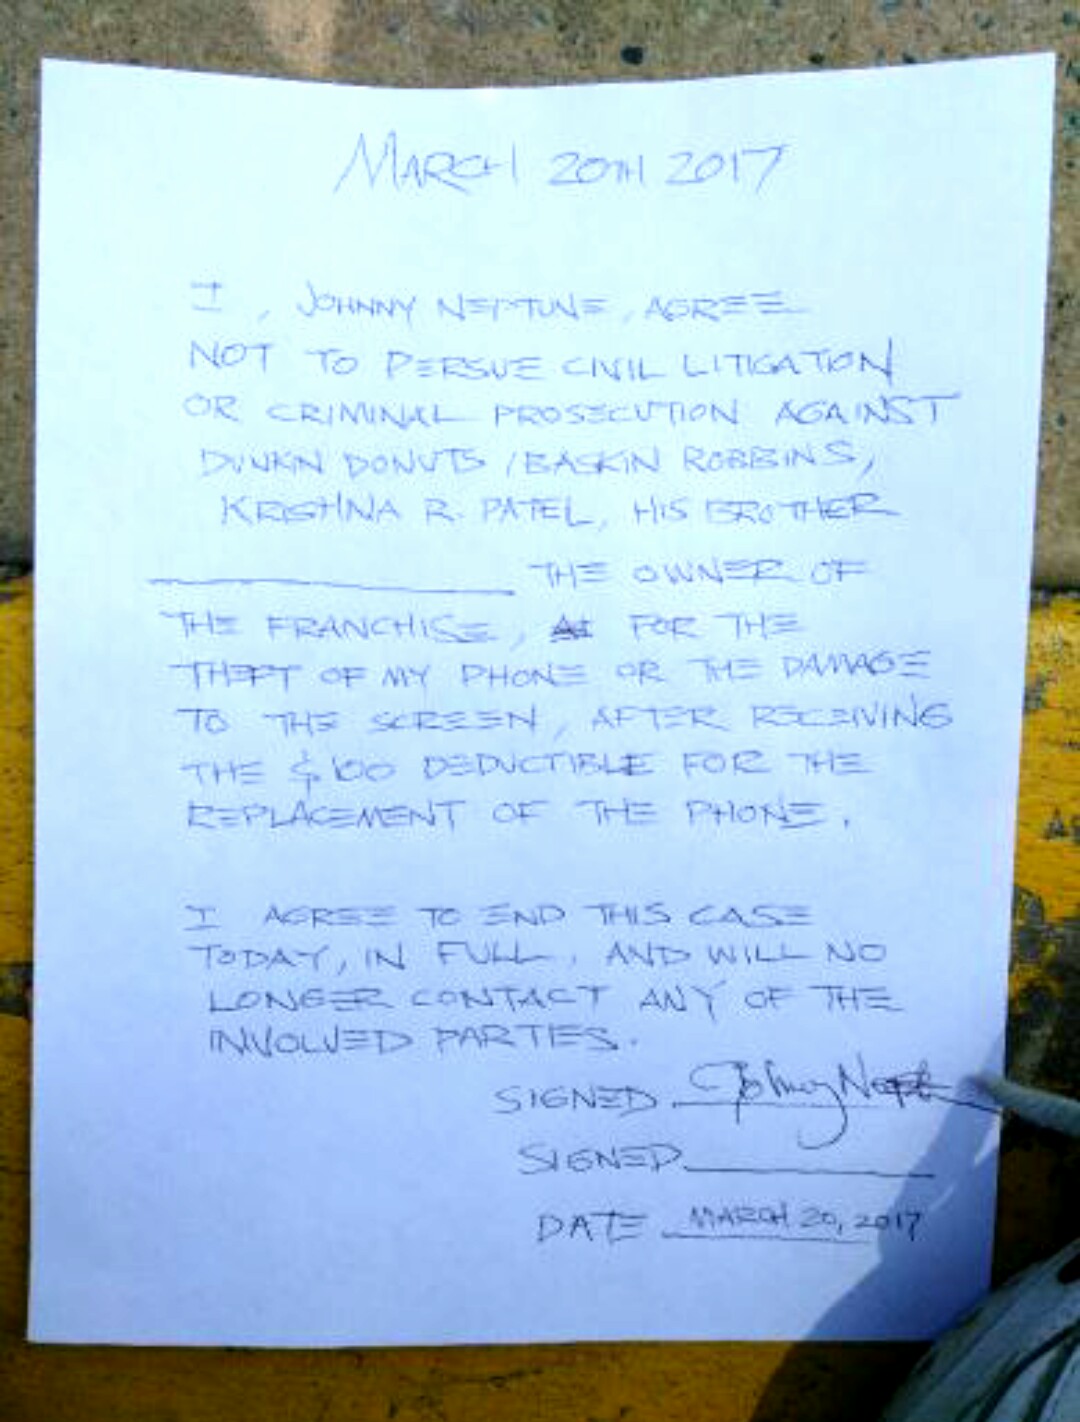 MARCH 20TH 2017
I, JOHNNY NEPTUNE, AGREE
NOT TO PERSUE CIVIL LITIGATION
OR CRIMINAL PROSECUTION AGAINST
DUNKIN DONUTS / BASKIN ROBBINS,
KRISHNA R. PATEL, HIS BROTHER
THE OWNER OF
THE FRANCHISE, FOR THE
THEFT OF MY PHONE OR THE DAMAGE
TO THE SCREEN, AFTER RECEIVING
THE $100 DEDUCTIBLE FOR THE
REPLACEMENT OF THE PHONE.
I AGREE TO END THIS CASE
TODAY, IN FULL, AND WILL NO
LONGER CONTACT ANY OF THE
INVOLVED PARTIES.
SIGNED Johnny
SIGNED
DATE MARCH 20, 2017